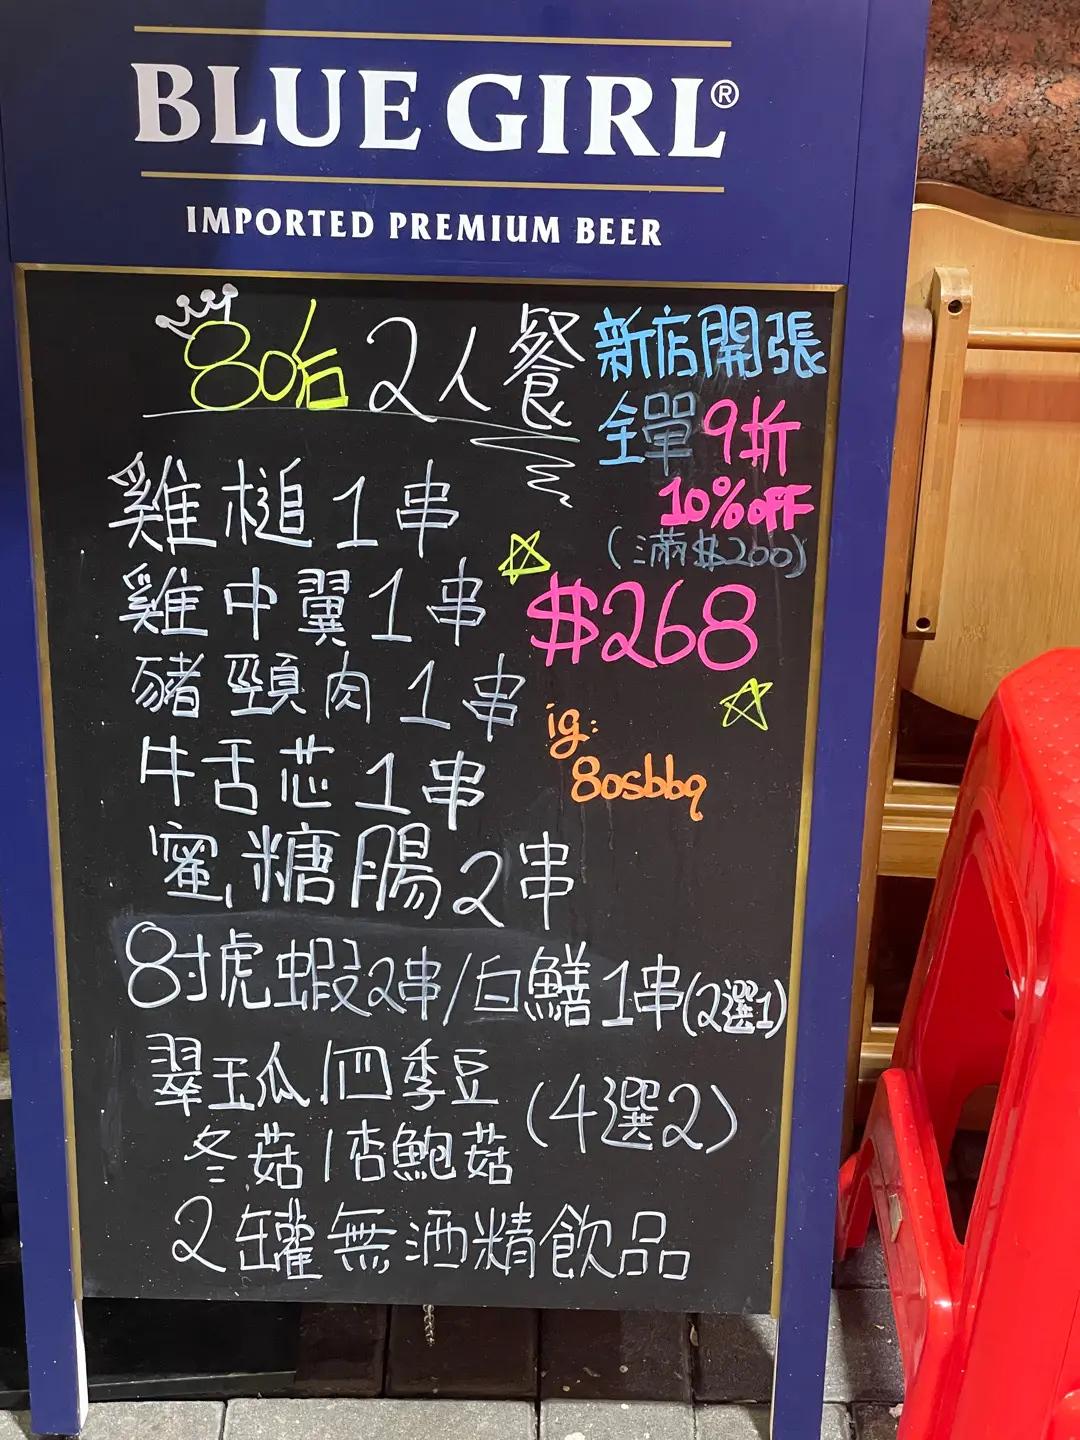 BLUE GIRL®
IMPORTED PREMIUM BEER
80後 2人餐
新店開張
全單9折
10% OFF
(滿$200)
雞槌1串
雞中翼1串
$268
豬頸肉1串
ig:
80sbbq
牛舌芯1串
蜜糖腸2串
8吋虎蝦2串/白鱔1串(2選1)
翠玉瓜/四季豆
冬菇/杏鮑菇
(4選2)
2罐無酒精飲品